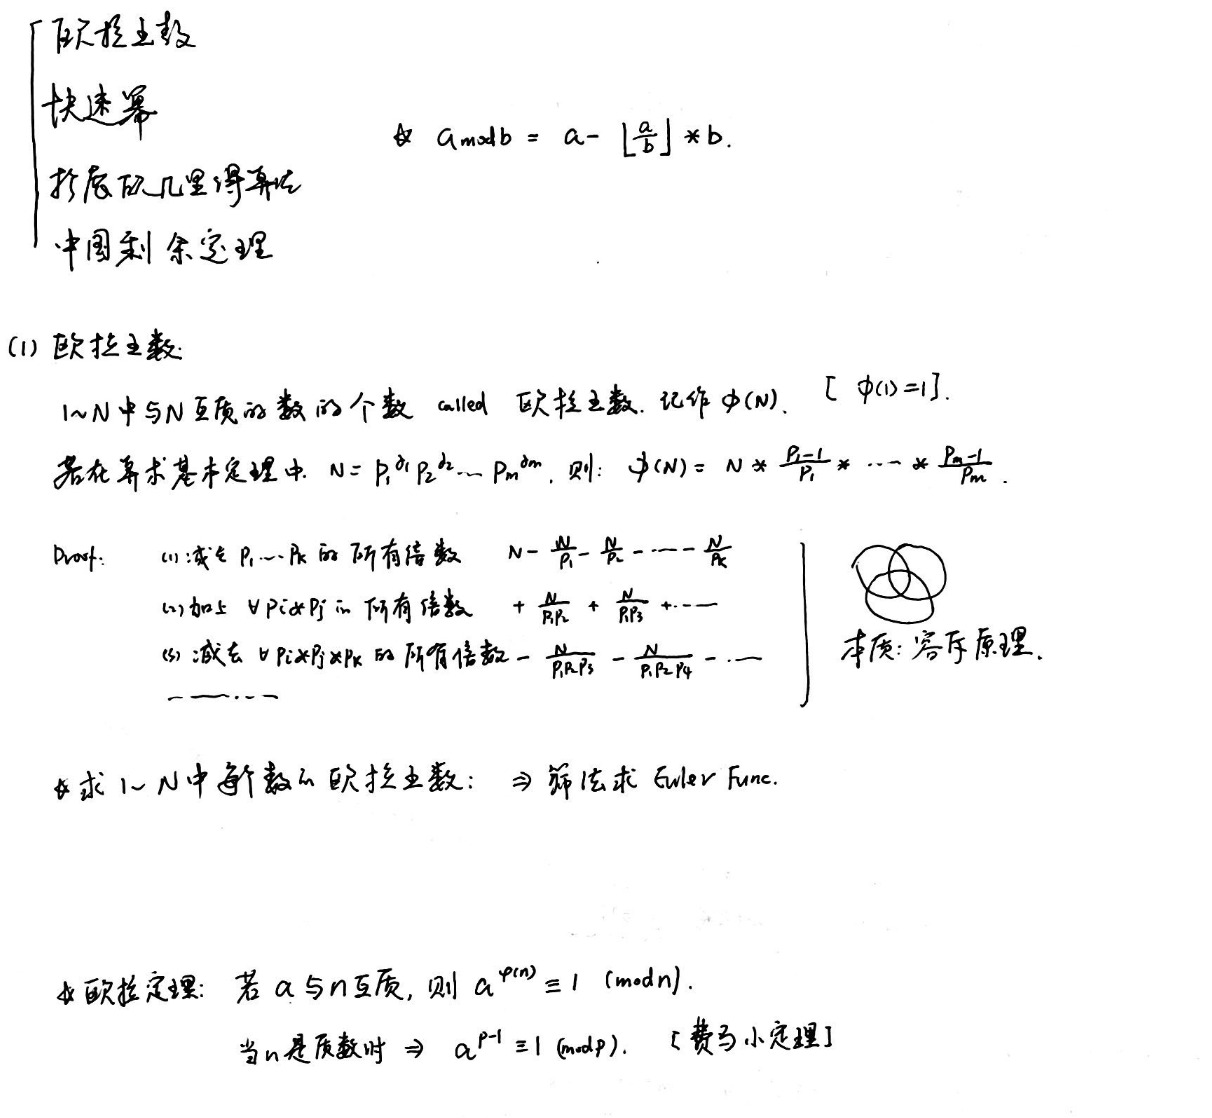 欧拉函数
快速幂
扩展欧几里得算法
中国剩余定理
☆ a mod b = a - ⌊a/b⌋ * b.
(1) 欧拉函数:
1~N中与N互质的数的个数 called 欧拉函数. 记作 φ(N). [ φ(1)=1 ].
若在算术基本定理中. N = p₁^α₁ p₂^α₂ … pₘ^αₘ, 则: φ(N) = N * (p₁-1)/p₁ * … * (pₘ-1)/pₘ.
Proof: (1) 减去 p₁…pₖ 的所有倍数 N - N/p₁ - N/p₂ - … - N/pₖ
(2) 加上 ∀ pᵢ*pⱼ 的所有倍数 + N/p₁p₂ + N/p₁p₃ + …
(3) 减去 ∀ pᵢ*pⱼ*pₖ 的所有倍数 - N/p₁p₂p₃ - N/p₁p₂p₄ - …
本质: 容斥原理.
☆ 求 1~N中每个数的欧拉函数: ⇒ 筛法求 Euler Func.
☆ 欧拉定理: 若 a 与 n 互质, 则 a^φ(n) ≡ 1 (mod n).
当 n 是质数时 ⇒ a^(p-1) ≡ 1 (mod p). [费马小定理]